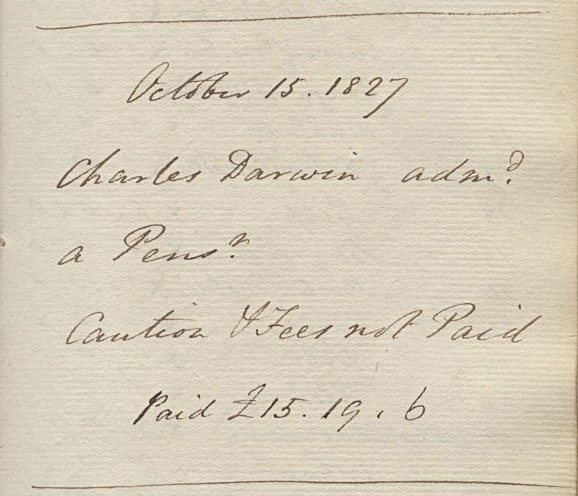 October 15. 1827
Charles Darwin admd.
a Pensr.
Caution & Fees not Paid
Paid £15. 19. 6